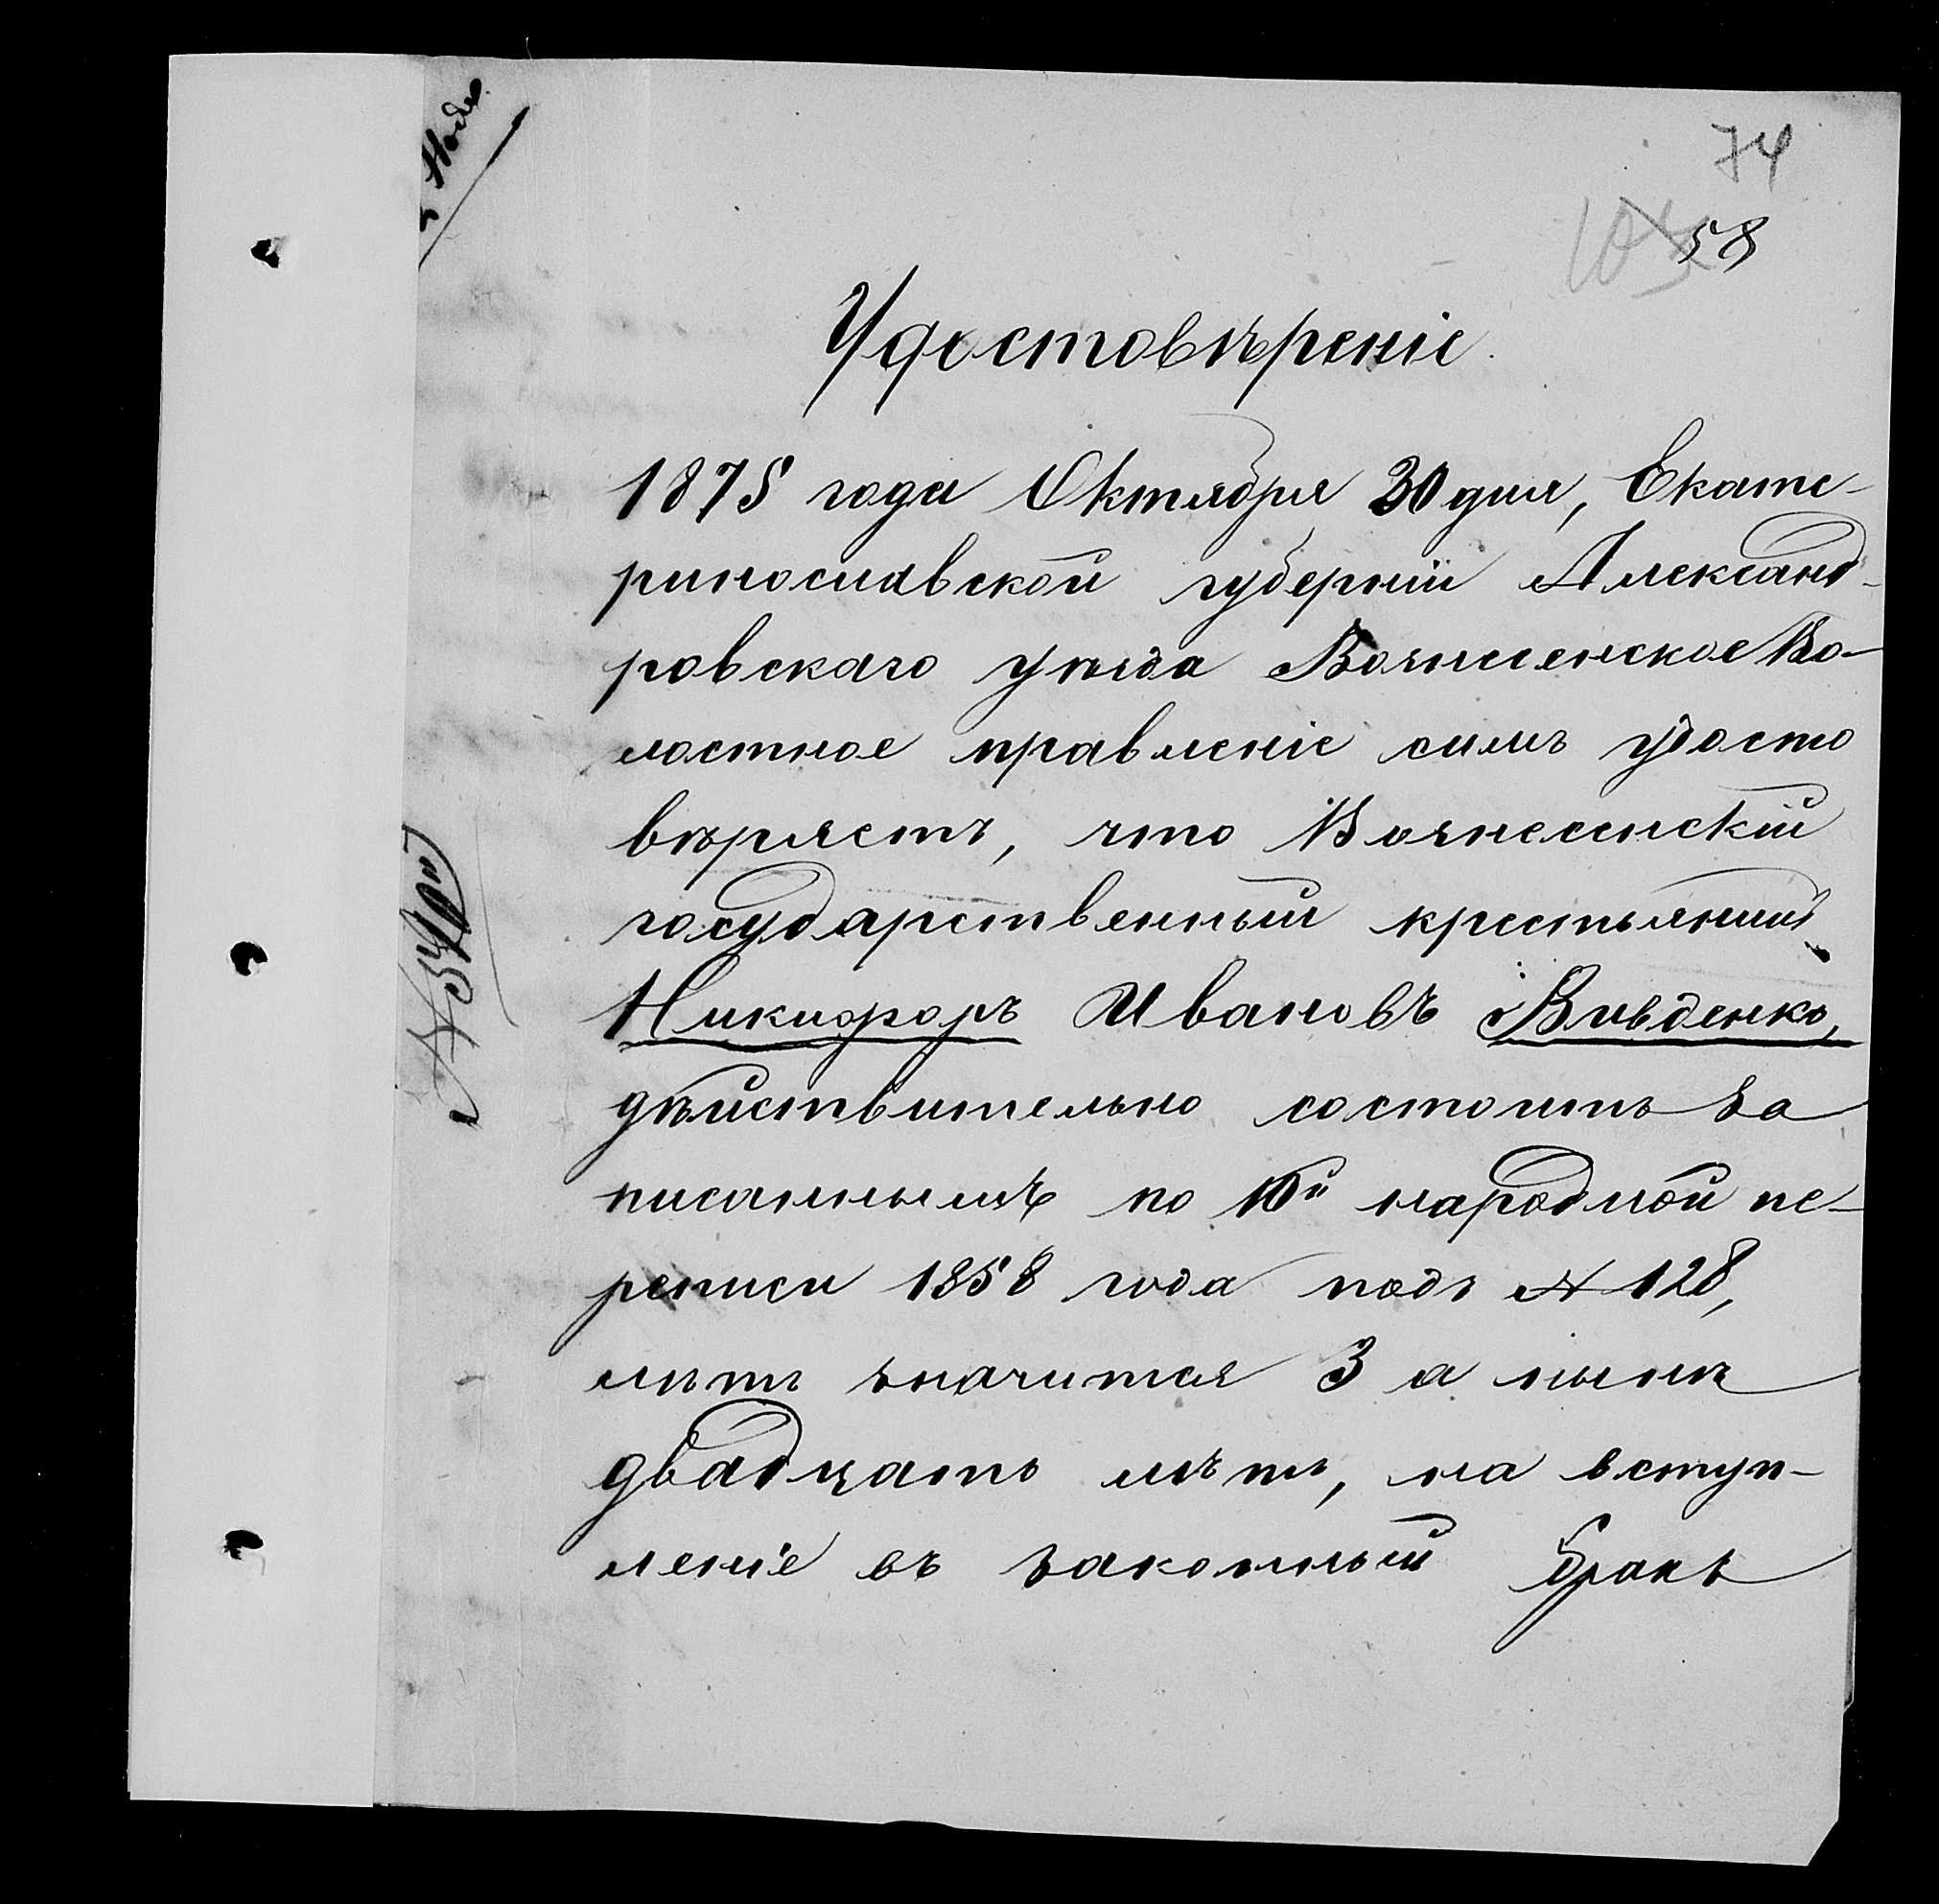 74
58
Удостовѣреніе.
1875 года Октября 30 дня, Екате-
ринославской губерніи Александ-
ровскаго уѣзда Вознесенское Во-
лостное правленіе симъ удосто
вѣряетъ, что Вознесенскій
государственный крестьянинъ
Никифоръ Ивановъ Вивденко,
дѣйствительно состоитъ за
писаннымъ по 10й народной пе-
реписи 1858 года подъ № 128,
лѣтъ значится 3 а нынѣ
двадцать лѣтъ, на вступ-
леніе въ законный бракъ